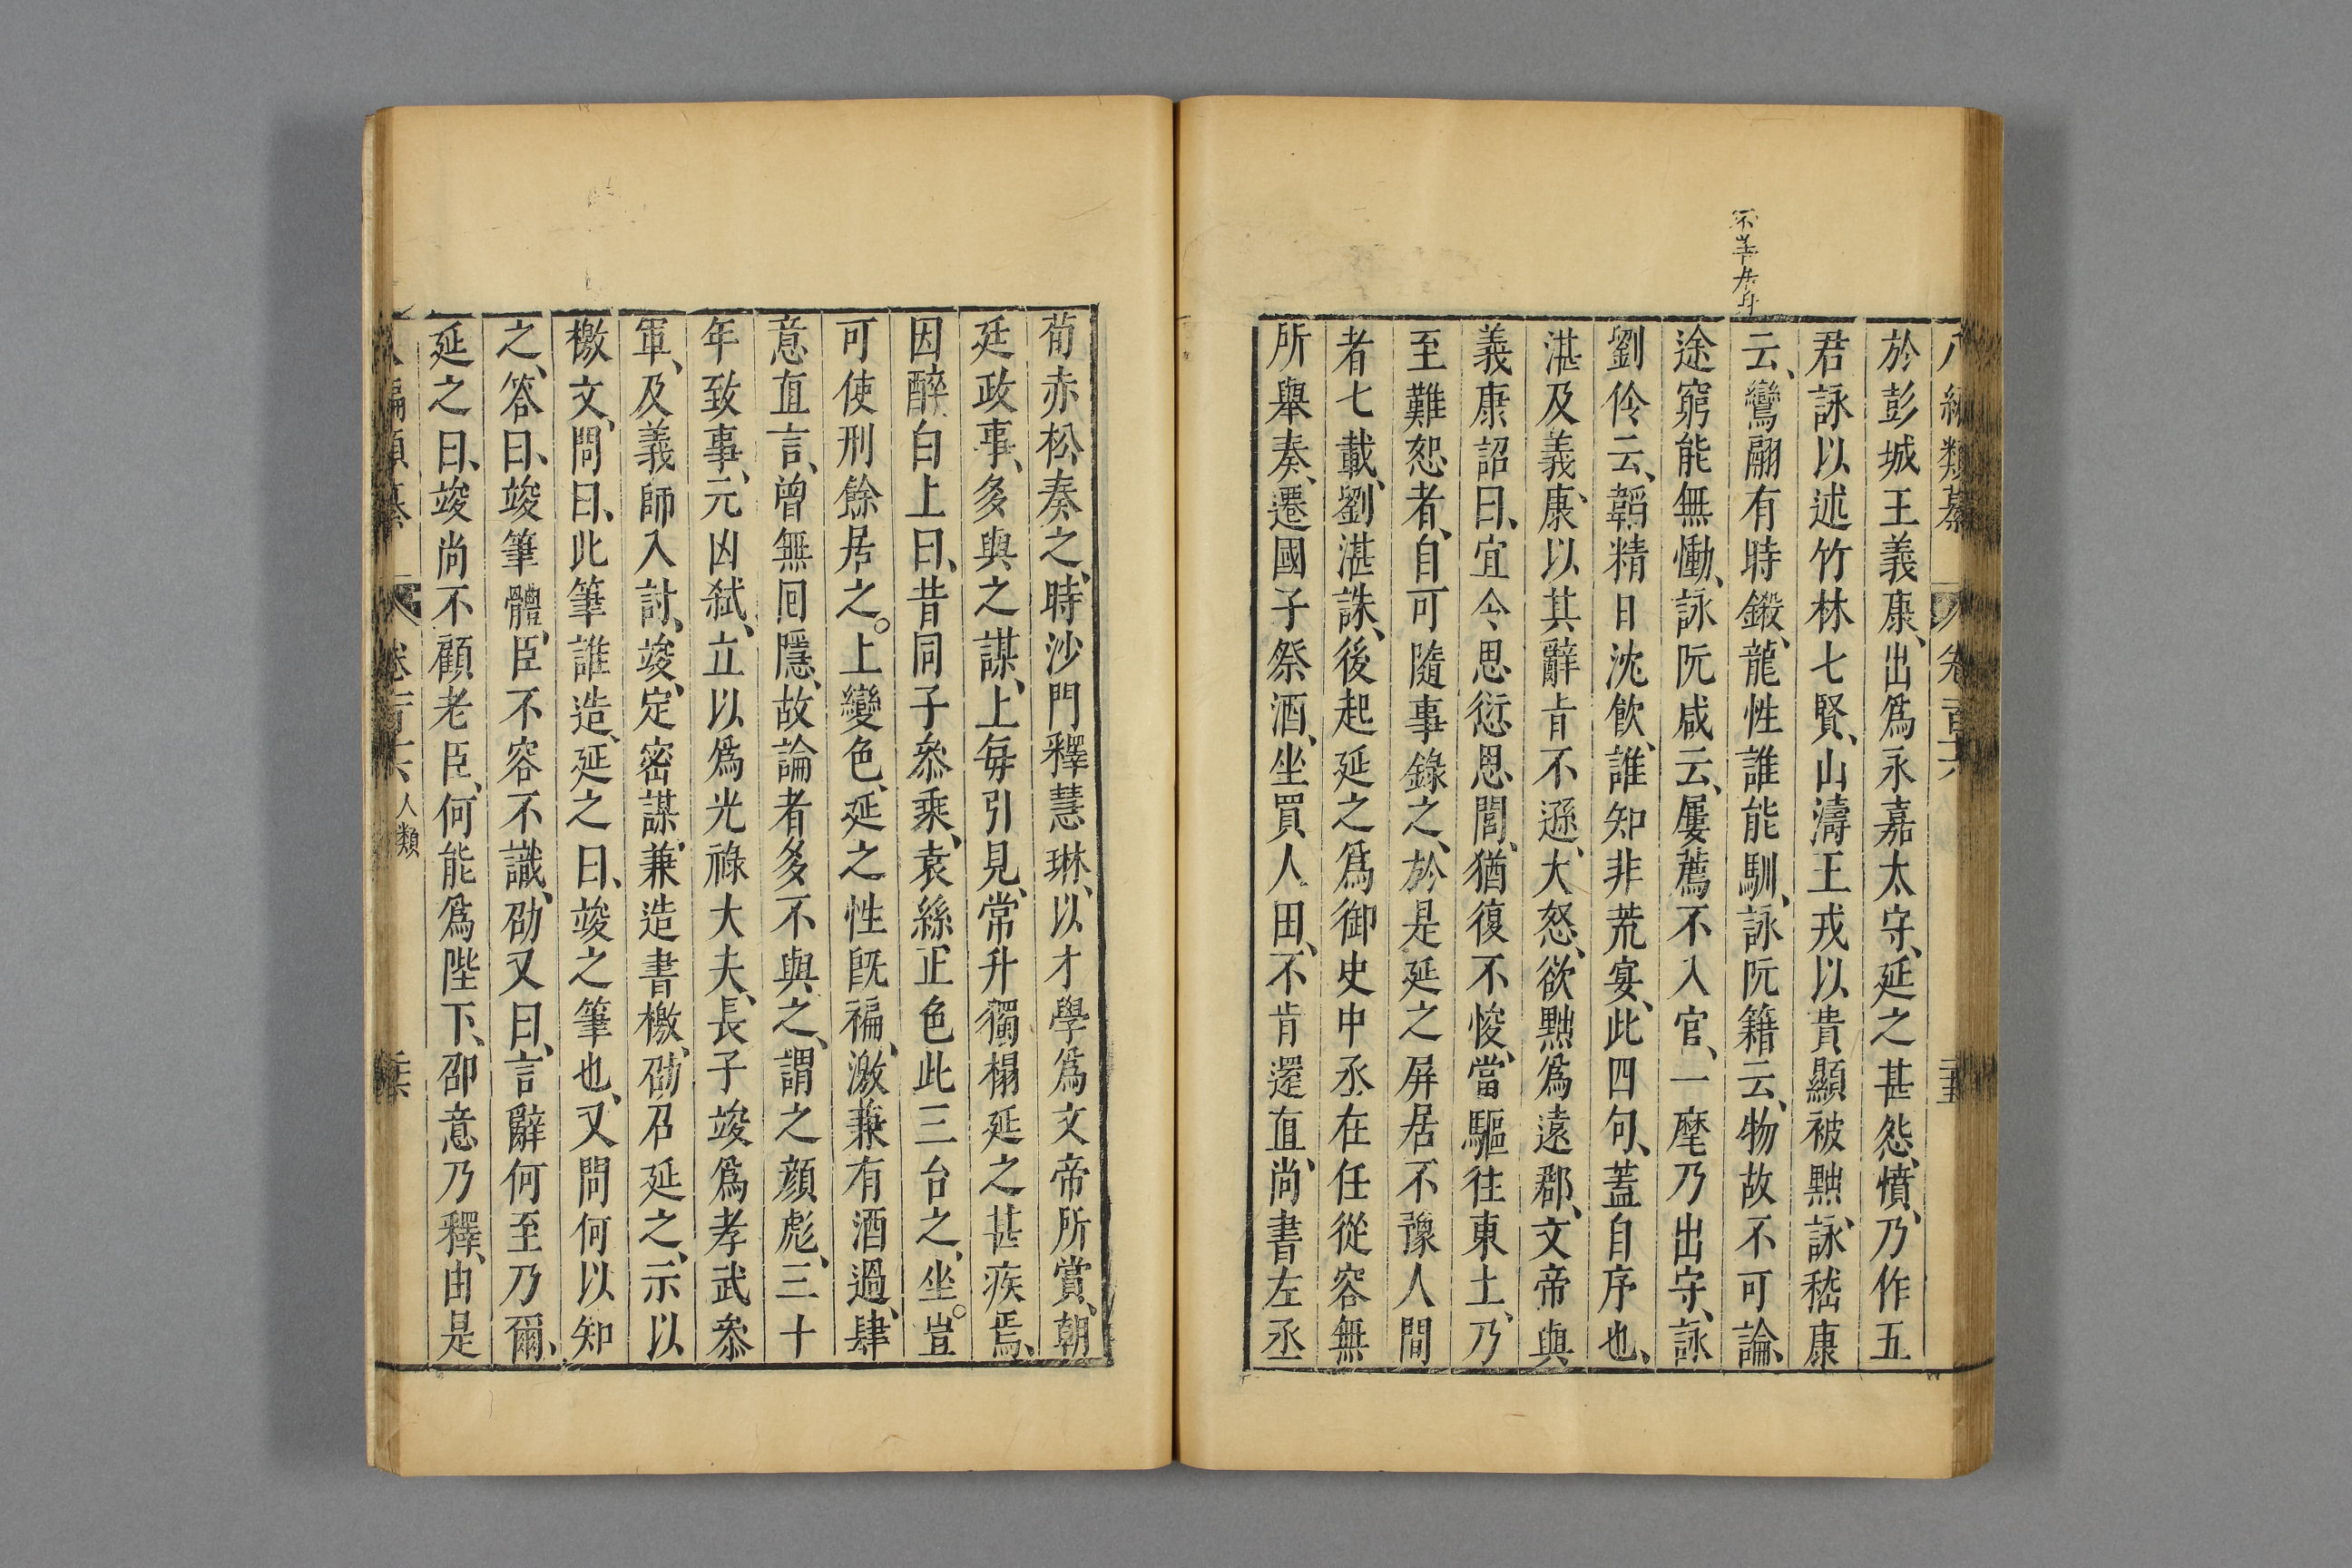 八編類纂 卷百六 二十五
不善居身
於彭城王義康、出爲永嘉太守、延之甚怨憤、乃作五
君詠以述竹林七賢、山濤王戎以貴顯被黜、詠嵇康
云、鸞翮有時鎩、龍性誰能馴、詠阮籍云、物故不可論、
途窮能無慟、詠阮咸云、屢薦不入官、一麾乃出守、詠
劉伶云、韜精日沈飲、誰知非荒宴、此四句、蓋自序也、
湛及義康、以其辭㫖不遜、大怒、欲黜爲遠郡、文帝與
義康詔曰、宜令思愆思閭、猶復不悛、當驅往東土、乃
至難恕者、自可隨事錄之、於是延之屏居不豫人間
者七載、劉湛誅、後起延之爲御史中丞在任從容無
所舉奏、遷國子祭酒、坐買人田、不肯還直、尚書左丞
荀赤松奏之、時沙門釋慧琳、以才學爲文帝所賞、朝
廷政事、多與之謀、上每引見、常升獨榻延之甚疾焉、
因醉白上曰、昔同子叅乘、袁絲正色此三台之、坐。豈
可使刑餘居之。上變色、延之性既褊、激兼有酒過、肆
意直言、曾無囘隱、故論者多不與之、謂之顔彪、三十
年致事、元凶弑、立以爲光祿大夫、長子竣爲孝武叅
軍、及義師入討、竣、定密謀、兼造書檄、劭召延之、示以
檄文、問曰、此筆誰造、延之曰、竣之筆也、又問何以知
之、答曰、竣筆體、臣不容不識、劭又曰、言辭何至乃爾、
延之曰、竣尚不顧老臣、何能爲陛下、卲意乃釋、由是
八編類纂 卷百六 人類 二十六